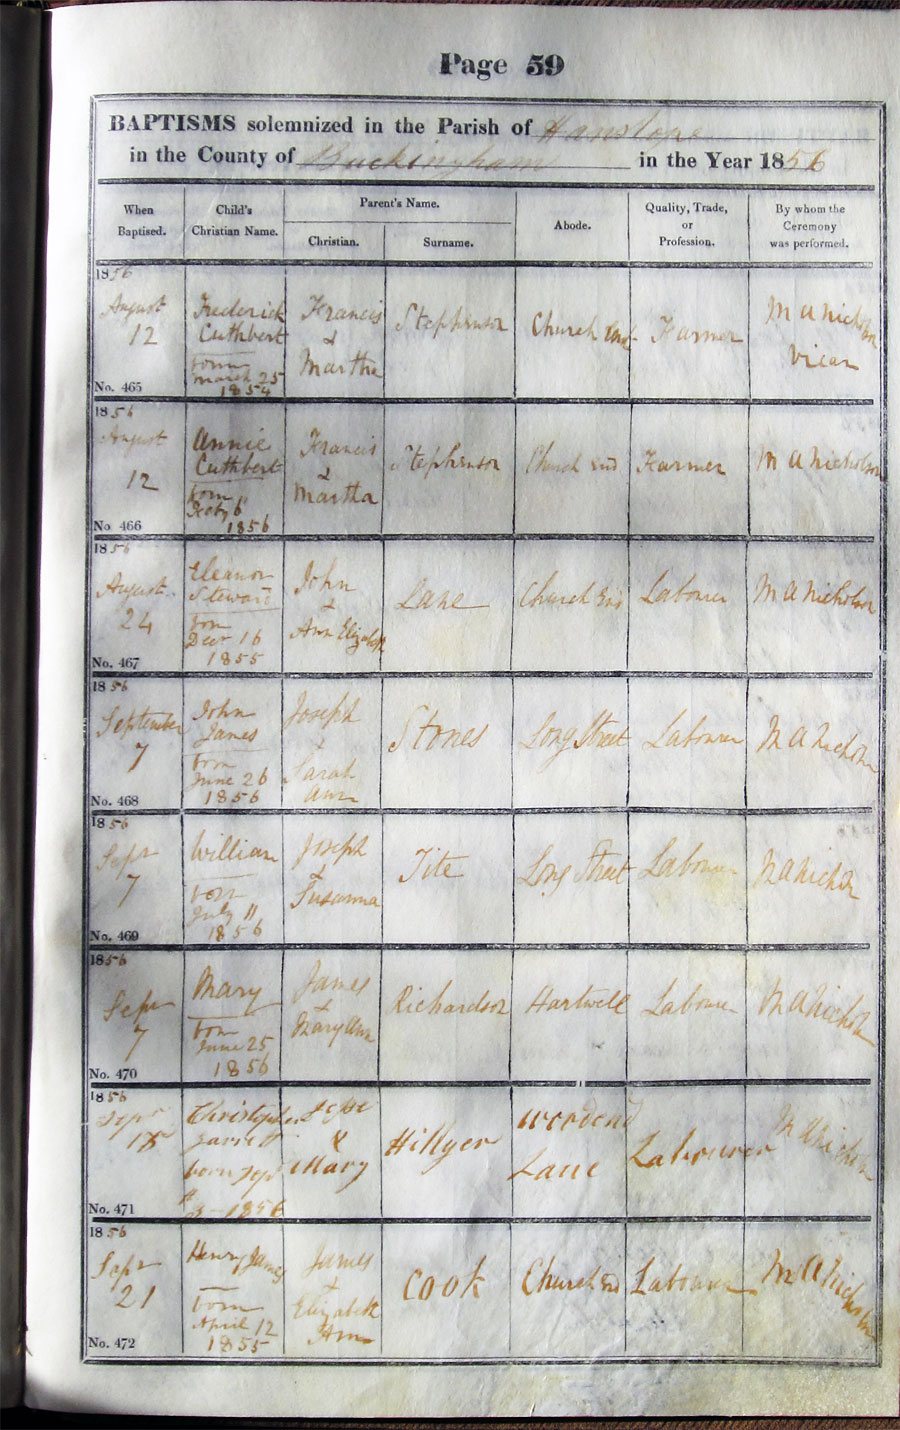 Page 59
BAPTISMS solemnized in the Parish of Hanslope
in the County of Buckingham in the Year 1856
When Baptised.
Child's Christian Name.
Parent's Name.
Christian.
Surname.
Abode.
Quality, Trade, or Profession.
By whom the Ceremony was performed.
1856
August
12
No. 465
Frederick
Cuthbert
born
March 25
1854
Francis
&
Martha
Stephenson
Church End
Farmer
M A Nicholson
Vicar
1856
August
12
No 466
Annie
Cuthbert
born
Feby 6
1856
Francis
&
Martha
Stephenson
Church End
Farmer
M A Nicholson
1856
August
24
No. 467
Eleanor
Steward
born
Decr 16
1855
John
&
Ann Elizabeth
Lane
Church End
Labourer
M A Nicholson
1856
September
7
No. 468
John
James
born
June 26
1856
Joseph
&
Sarah
Ann
Stones
Long Street
Labourer
M A Nicholson
1856
Sepr
7
No. 469
William
born
July 11
1856
Joseph
&
Susanna
Tite
Long Street
Labourer
M A Nicholson
1856
Sepr
7
No. 470
Mary
born
June 25
1856
James
&
Mary Ann
Richardson
Hartwell
Labourer
M A Nicholson
1856
Sepr
No. 471
Christopher
born Sepr
1856
&
Mary
Hillyer
Woodend
Lane
Labourer
M A Nicholson
1856
Sepr
21
No. 472
Henry James
born
April 12
1855
James
&
Elizabeth
Ann
Cook
Church End
Labourer
M A Nicholson